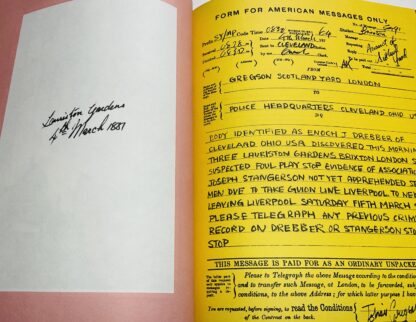 Lauriston Gardens
4th March 1881
FORM FOR AMERICAN MESSAGES ONLY
Prefix Code Time
Date 4th March
Sent to CLEVELAND
By
FROM
GREGSON SCOTLAND YARD LONDON
TO
POLICE HEADQUARTERS CLEVELAND OHIO
BODY IDENTIFIED AS ENOCH J DREBBER OF
CLEVELAND OHIO USA DISCOVERED THIS MORNIN
THREE LAURISTON GARDENS BRIXTON LONDON S
SUSPECTED FOUL PLAY STOP EVIDENCE OF ASSOCIATI
JOSEPH STANGERSON NOT YET APPREHENDED ST
MEN DUE TO TAKE GUION LINE LIVERPOOL TO NE
LEAVING LIVERPOOL SATURDAY FIFTH MARCH S
PLEASE TELEGRAPH ANY PREVIOUS CRIMI
RECORD ON DREBBER OR STANGERSON STO
STOP
THIS MESSAGE IS PAID FOR AS AN ORDINARY UNPACKE
Please to Telegraph the above Message according to the condit
and to transfer such Message, at London, to be forwarded, subj
conditions, to the above Address; for which latter purpose I ha
You are requested, before signing, to read the Conditions
of the Contract on back.